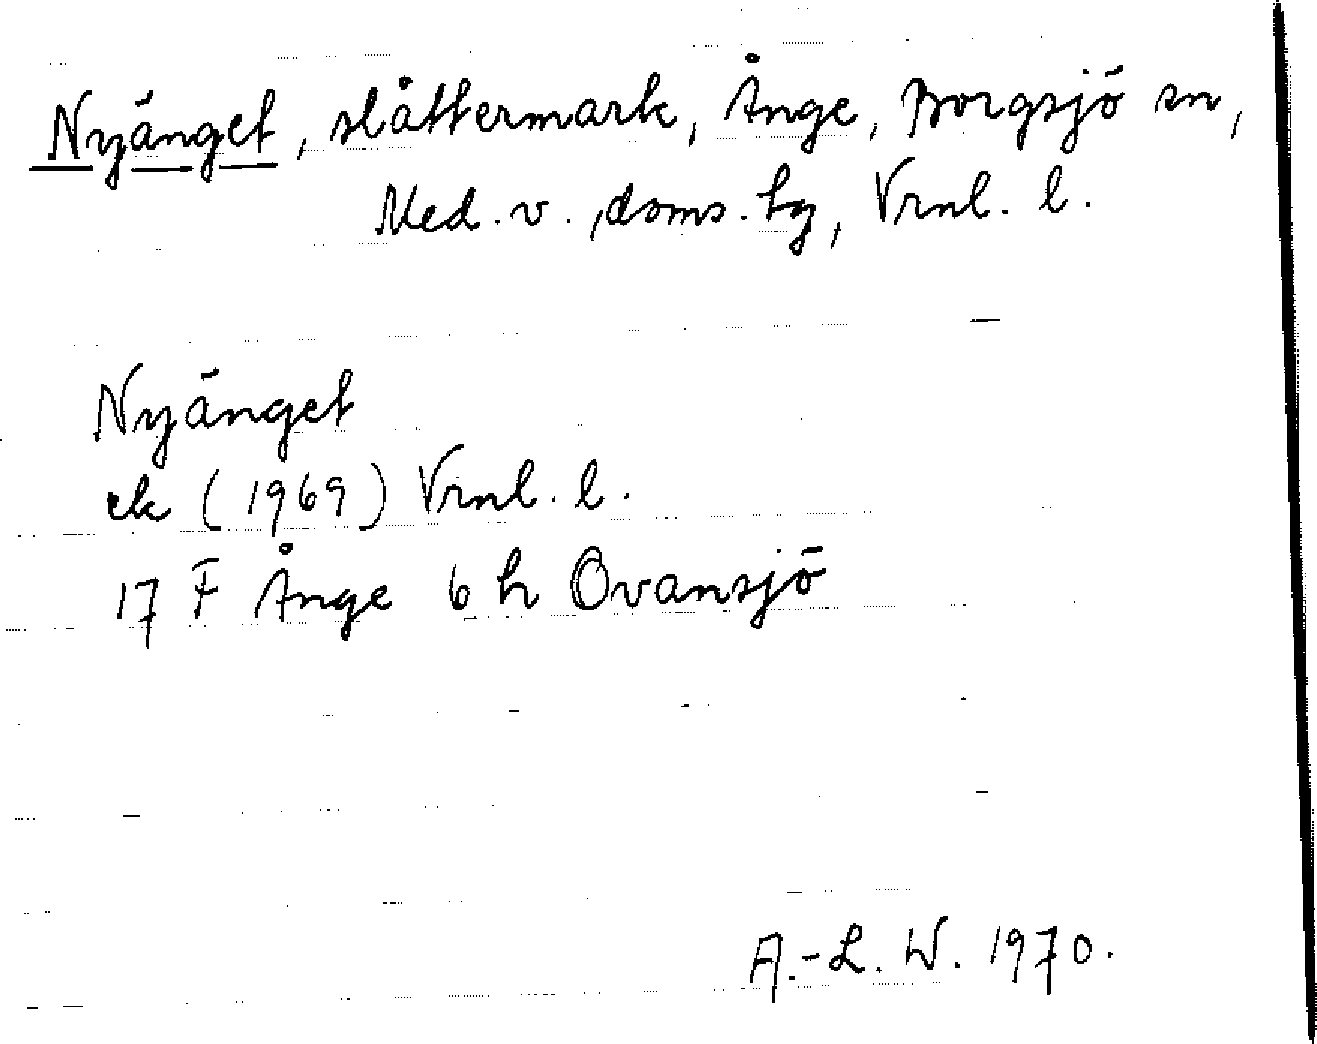 Nyänget, slåttermark, Ånge, Borgsjö sn,
Med. v., doms. hg, Vrnl. l.
Nyänget
ek (1969) Vrnl. l.
17 F Ånge 6 h Ovansjö
A.-L. W. 1970.